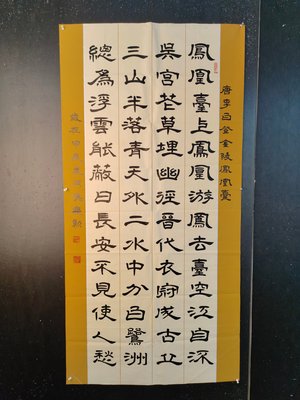 唐李白登金陵鳳凰臺
鳳凰臺上鳳凰游鳳去臺空江自流
吳宮花草埋幽徑晉代衣冠成古丘
三山半落青天外二水中分白鷺洲
總為浮雲能蔽日長安不見使人愁
歲在甲辰